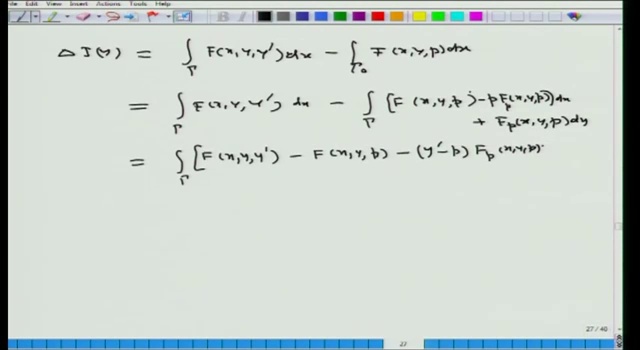 le View Insert Actions Tools Help
Δ J(y) = ∫_Γ F(x,y,y') dx − ∫_Γ₀ F(x,y,p) dx
= ∫_Γ F(x,y,y') dx − ∫_Γ [F(x,y,p) − p F_p(x,y,p)] dx
+ F_p(x,y,p) dy
= ∫_Γ [F(x,y,y') − F(x,y,p) − (y'−p) F_p(x,y,p)
27 / 40
27